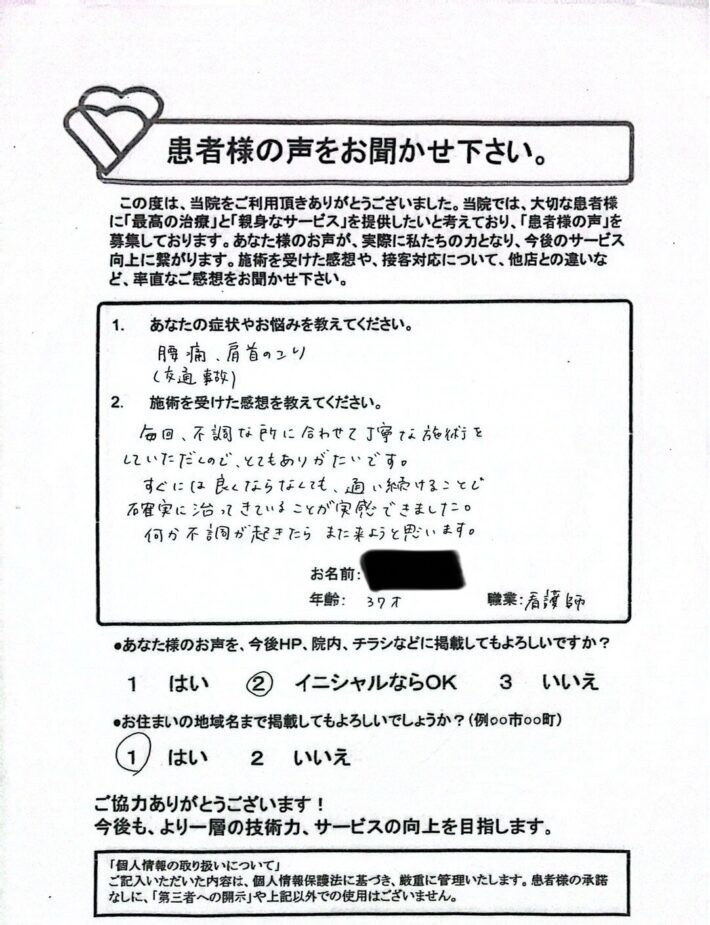 患者様の声をお聞かせ下さい。
この度は、当院をご利用頂きありがとうございました。当院では、大切な患者様
に「最高の治療」と「親身なサービス」を提供したいと考えており、「患者様の声」を
募集しております。あなた様のお声が、実際に私たちの力となり、今後のサービス
向上に繋がります。施術を受けた感想や、接客対応について、他店との違いな
ど、率直なご感想をお聞かせ下さい。
1. あなたの症状やお悩みを教えてください。
腰痛、肩首のこり
(交通事故)
2. 施術を受けた感想を教えてください。
毎回、不調な所に合わせて丁寧な施術を
していただくので、とてもありがたいです。
すぐには良くならなくても、通い続けることで
確実に治ってきていることが実感できました。
何か不調が起きたら また来ようと思います。
お名前:
年齢: 37才 職業: 看護師
●あなた様のお声を、今後HP、院内、チラシなどに掲載してもよろしいですか?
1 はい ② イニシャルならOK 3 いいえ
●お住まいの地域名まで掲載してもよろしいでしょうか?(例○○市○○町)
① はい 2 いいえ
ご協力ありがとうございます!
今後も、より一層の技術力、サービスの向上を目指します。
「個人情報の取り扱いについて」
ご記入いただいた内容は、個人情報保護法に基づき、厳重に管理いたします。患者様の承諾
なしに、「第三者への開示」や上記以外での使用はございません。